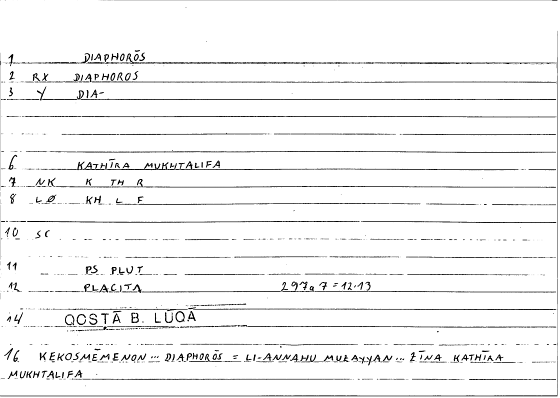 1 DIAPHORŌS
2 RX DIAPHOROS
3 Y DIA-
6 KATHĪRA MUKHTALIFA
7 NK K TH R
8 LØ KH L F
10 SC
11 PS PLUT
12 PLACITA 297a 7 = 12.13
14 QOSṬĀ B. LŪQĀ
16 KEKOSMĒMENON ... DIAPHORŌS = LI-ANNAHU MUZAYYAN ... ZĪNA KATHĪRA
MUKHTALIFA